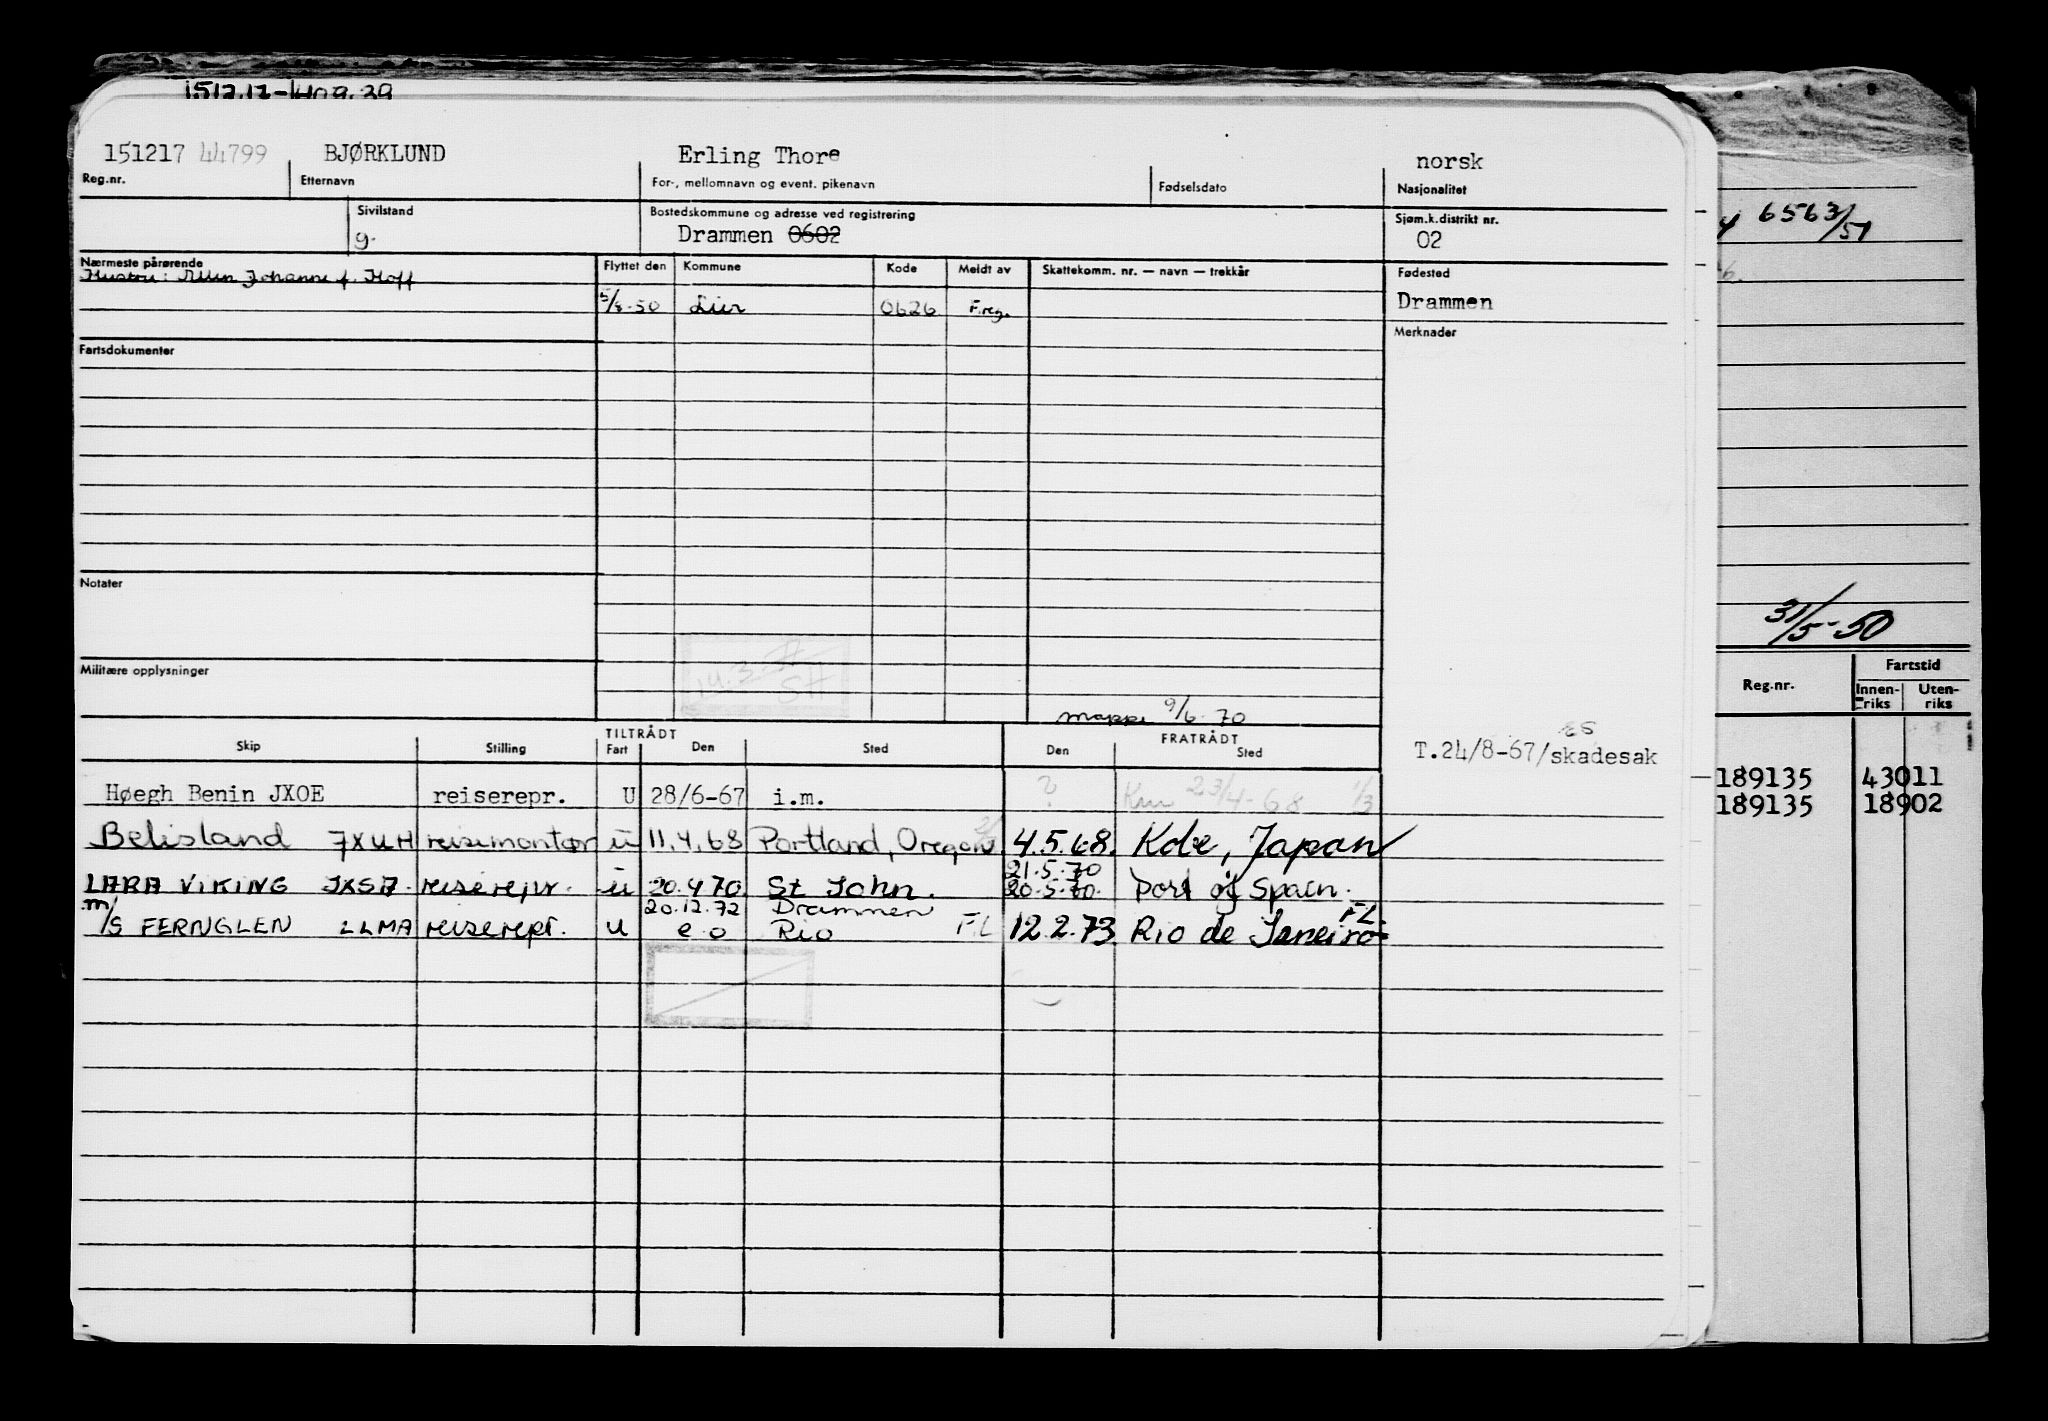 151217 44799 BJØRKLUND Erling Thore norsk
Reg.nr. Etternavn For-, mellomnavn og event. pikenavn Fødselsdato Nasjonalitet
Sivilstand Bostedskommune og adresse ved registrering Sjøm.k.distrikt nr.
g. Drammen 0602 02
Nærmeste pårørende Flyttet den Kommune Kode Meldt av Skattekomm. nr. — navn — trekkår Fødested
Johanne f. Hoff
5/8-50 Lier 0626 F.reg. Drammen
Merknader
Fartsdokumenter
Notater
Militære opplysninger
mappe 9/6-70
TILTRÅDT FRATRÅDT
Skip Stilling Fart Den Sted Den Sted
T.24/8-67/skadesak
Høegh Benin JXOE reiserepr. U 28/6-67 i.m. ? 23/4-68 1/3
Belisland JXUH reisemontør u 11.4.68 Portland, Oregon 4.5.68. Kobe, Japan
21.5.70
LARA VIKING JXSA reiserepr. u 20.4.70 St John. 20.5.70. Port of Spain.
20.12.72 Drammen
m/s FERNGLEN LLMA reiserepr. u e.o Rio FL 12.2.73 Rio de Janeiro FL
6563/51
31/5-50
Reg.nr. Fartstid
Innen-riks Uten-riks
189135 43011
189135 18902